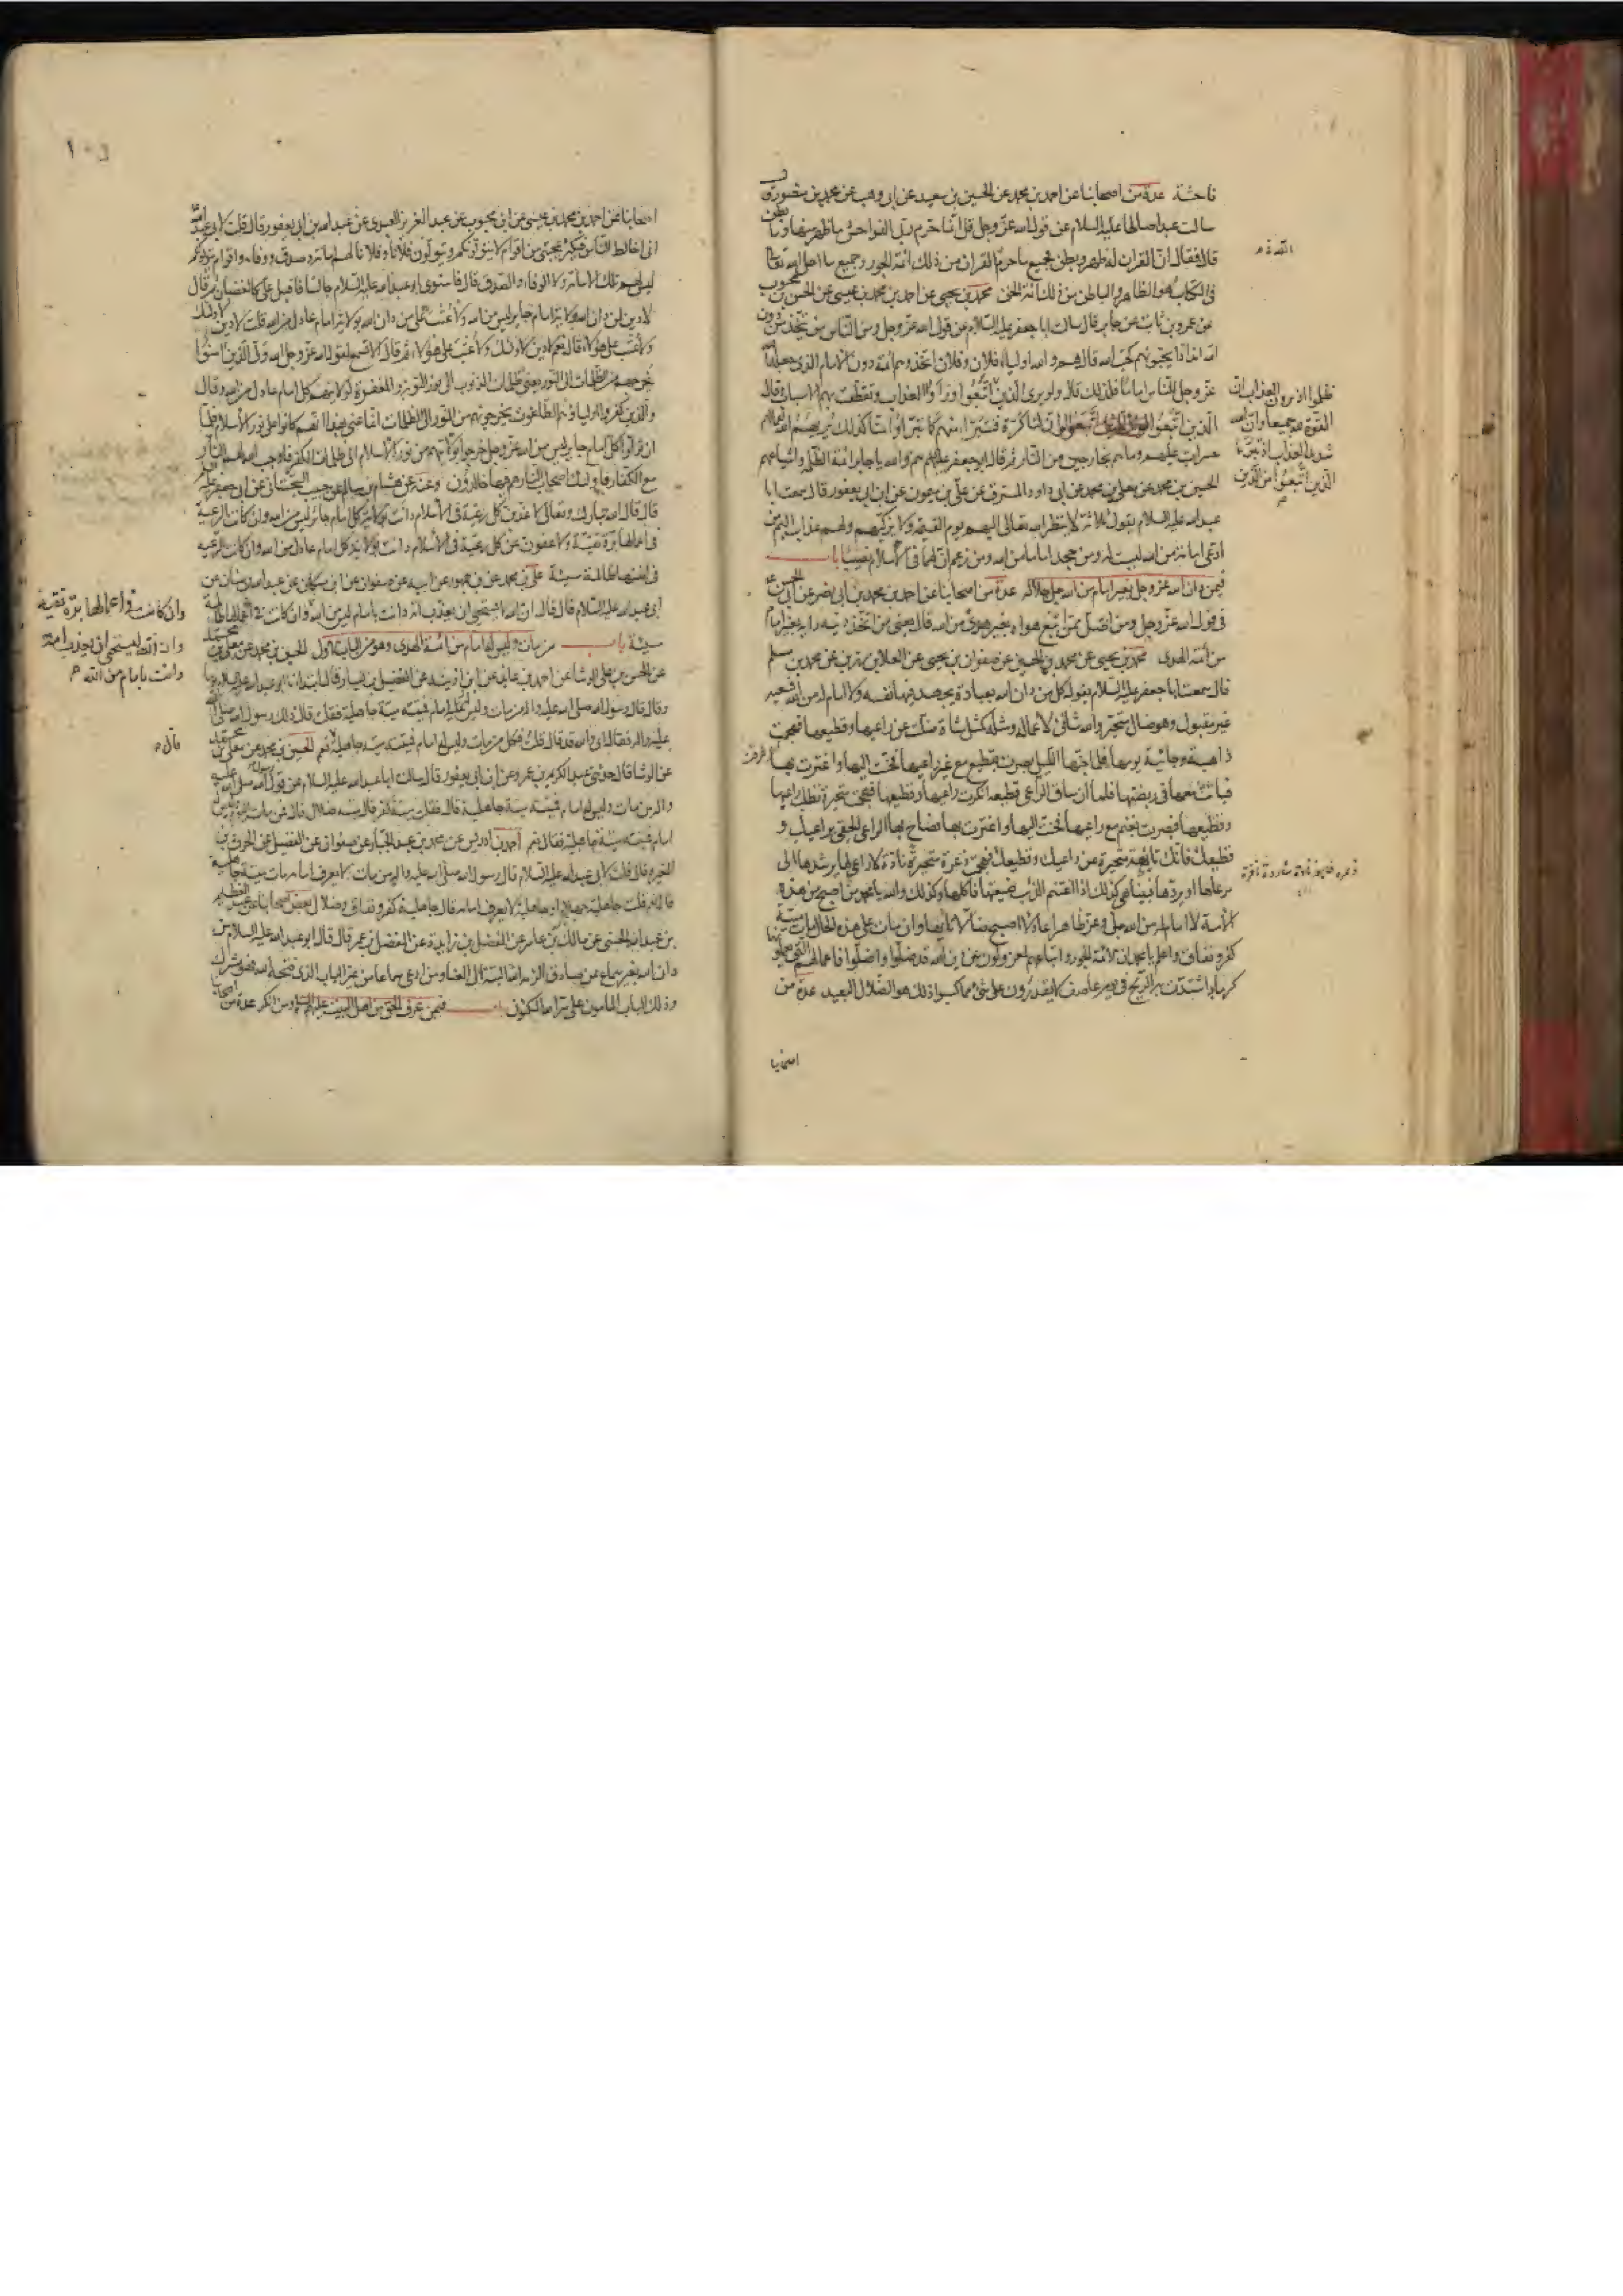 فاحشة عدة من اصحابنا عن احمد بن محمد عن الحسين بن سعيد عن ابى وهب عن محمد بن منصور قال
سالت عبدا صالحا عليه السلام عن قول الله عز وجل قل انما حرم ربى الفواحش ما ظهر منها وما بطن
قال فقال ان القران له ظهر وبطن فجميع ما حرم القران من ذلك ائمة الجور وجميع ما احل الله تعالى
فى الكتاب هو الظاهر والباطن من ذلك ائمة الحق محمد بن يحيى عن احمد بن محمد بن عيسى عن الحسن بن محبوب
عن عمرو بن ثابت عن جابر قال سالت ابا جعفر عليه السلام عن قول الله عز وجل ومن الناس من يتخذ من دون
الله اندادا يحبونهم كحب الله قال هم والله اولياء فلان وفلان اتخذوهم ائمة دون الامام الذى جعله الله
عز وجل للناس اماما فلذلك قال ولو يرى الذين اتبعوا وراوا العذاب وتقطعت بهم الاسباب وقال
الذين اتبعوا لو ان لنا كرة فنتبرا منهم كما تبراوا منا كذلك يريهم الله اعمالهم
حسرات عليهم وما هم بخارجين من النار ثم قال ابو جعفر عليه السلام هم والله يا جابر ائمة الظلمة واشياعهم
الحسين بن محمد عن معلى بن محمد عن ابى داود المسترق عن على بن ميمون عن ابن ابى يعفور قال سمعت ابا
عبد الله عليه السلام يقول ثلاثة لا ينظر الله تعالى اليهم يوم القيمة ولا يزكيهم ولهم عذاب اليم من
ادعى امامة من الله ليست له ومن جحد اماما من الله ومن زعم ان لهما فى الاسلام نصيبا باب
فيمن دان الله عز وجل بغير امام من الله جل جلاله عدة من اصحابنا عن احمد بن محمد بن ابى نصر عن ابى الحسن
فى قول الله عز وجل ومن اضل ممن اتبع هواه بغير هدى من الله قال يعنى من اتخذ دينه رايه بغير امام
من ائمة الهدى محمد بن يحيى عن محمد بن الحسين عن صفوان بن يحيى عن العلا بن رزين عن محمد بن مسلم
قال سمعت ابا جعفر عليه السلام يقول كل من دان الله بعبادة يجهد فيها نفسه ولا امام له من الله فسعيه
غير مقبول وهو ضال متحير والله شانى لاعماله ومثله كمثل شاة ضلت عن راعيها وقطيعها فهجمت
ذاهبة وجائية يومها فلما جنها الليل بصرت بقطيع مع غير راعيها فحنت اليها واغترت بها
فباتت معها فى ربضتها فلما ان ساق الراعى قطيعه انكرت راعيها وقطيعها فهجمت متحيرة تطلب راعيها
وقطيعها فبصرت بغنم مع راعيها فحنت اليها واغترت بها فصاح بها الراعى الحقى براعيك و
قطيعك فانك تائهة متحيرة عن راعيك وقطيعك فهجمت ذعرة متحيرة نادة لا راعى لها يرشدها الى
مرعاها او يردها فبينا هى كذلك اذا اغتنم الذئب ضيعتها فاكلها وكذلك والله يا محمد من اصبح من هذه
الامة لا امام له من الله جل وعز ظاهرا عادلا اصبح ضالا تائها وان مات على هذه الحال مات ميتة
كفر ونفاق واعلم يا محمد ان ائمة الجور واتباعهم لمعزولون عن دين الله قد ضلوا واضلوا فاعمالهم التى يعملونها
كرماد اشتدت به الريح فى يوم عاصف لا يقدرون على شئ مما كسبوا ذلك هو الضلال البعيد عدة من
اصحابنا
ظلموا اذ يرون العذاب ان
القوة لله جميعا وان الله
شديد العذاب اذ تبرء
الذين اتبعوا من الذين
١٠٥
اصحابنا عن احمد بن محمد بن عيسى عن ابن محبوب عن عبد العزيز العبدى عن عبد الله بن ابى يعفور قال قلت لابى عبد الله
انى اخالط الناس فيكثر عجبى من اقوام لا يتولونكم ويتولون فلانا وفلانا لهم امانة وصدق ووفاء واقوام يتولونكم
ليس لهم تلك الامانة ولا الوفاء والصدق قال فاستوى ابو عبد الله عليه السلام جالسا فاقبل على كالغضبان ثم قال
لا دين لمن دان الله بولاية امام جاير ليس من الله ولا عتب على من دان الله بولاية امام عادل من الله قلت لا دين لاولئك
ولا عتب على هؤلاء قال نعم لا دين لاولئك ولا عتب على هؤلاء ثم قال الا تسمع لقول الله عز وجل الله ولى الذين امنوا
يخرجهم من الظلمات الى النور يعنى ظلمات الذنوب الى نور التوبة والمغفرة لولايتهم كل امام عادل من الله وقال
والذين كفروا اولياؤهم الطاغوت يخرجونهم من النور الى الظلمات انما عنى بهذا انهم كانوا على نور الاسلام فلما
ان تولوا كل امام جاير ليس من الله عز وجل خرجوا بولايتهم من نور الاسلام الى ظلمات الكفر فاوجب الله لهم النار
مع الكفار فاولئك اصحاب النار هم فيها خالدون وعنه عن هشام بن سالم عن حبيب السجستانى عن ابى جعفر عليه السلام
قال قال الله تبارك وتعالى لاعذبن كل رعية فى الاسلام دانت بولاية كل امام جائر ليس من الله وان كانت الرعية
فى اعمالها برة تقية ولاعفون عن كل رعية فى الاسلام دانت بولاية كل امام عادل من الله وان كانت الرعية
فى انفسها ظالمة مسيئة على بن محمد عن ابن جمهور عن ابيه عن صفوان عن ابن مسكان عن عبد الله بن سنان عن
ابى عبد الله عليه السلام قال قال ان الله لا يستحيى ان يعذب امة دانت بامام ليس من الله وان كانت فى اعمالها ظالمة
مسيئة باب من مات وليس له امام من ائمة الهدى وهو من الباب الاول الحسين بن محمد عن معلى بن محمد
عن الحسن بن على الوشا عن احمد بن عائذ عن ابن اذينة عن الفضيل بن يسار قال ابتدانا ابو عبد الله عليه السلام يوما
وقال قال رسول الله صلى الله عليه واله من مات وليس عليه امام فميتته ميتة جاهلية فقلت قال ذلك رسول الله صلى الله
عليه واله فقال اى والله قد قال قلت فكل من مات وليس له امام فميتته ميتة جاهلية قال نعم الحسين بن محمد عن معلى بن محمد
عن الوشا قال حدثنى عبد الكريم بن عمرو عن ابن ابى يعفور قال سالت ابا عبد الله عليه السلام عن قول رسول الله صلى الله عليه
واله من مات وليس له امام فميتته ميتة جاهلية قال قلت ميتة كفر قال ميتة ضلال قلت فمن مات اليوم وليس له
امام فميتته ميتة جاهلية فقال نعم احمد بن ادريس عن محمد بن عبد الجبار عن صفوان عن الفضيل عن الحرث بن
المغيرة قال قلت لابى عبد الله عليه السلام قال رسول الله صلى الله عليه واله من مات لا يعرف امامه مات ميتة جاهلية
قال نعم قلت جاهلية جهلاء او جاهلية لا يعرف امامه قال جاهلية كفر ونفاق وضلال بعض اصحابنا عن عبد العظيم
بن عبد الله الحسنى عن مالك بن عامر عن المفضل بن زايدة عن المفضل بن عمر قال قال ابو عبد الله عليه السلام من
دان الله بغير سماع عن صادق الزمه الله البتة الى العنا ومن ادعى سماعا من غير الباب الذى فتحه الله فهو مشرك
وذلك الباب المامون على سر الله المكنون باب فيمن عرف الحق من اهل البيت عليهم السلام ومن انكر عدة من اصحابنا
وان كانت فى اعمالها برة تقية
وان الله ليستحيى ان يعذب امة
دانت بامام من الله
قال